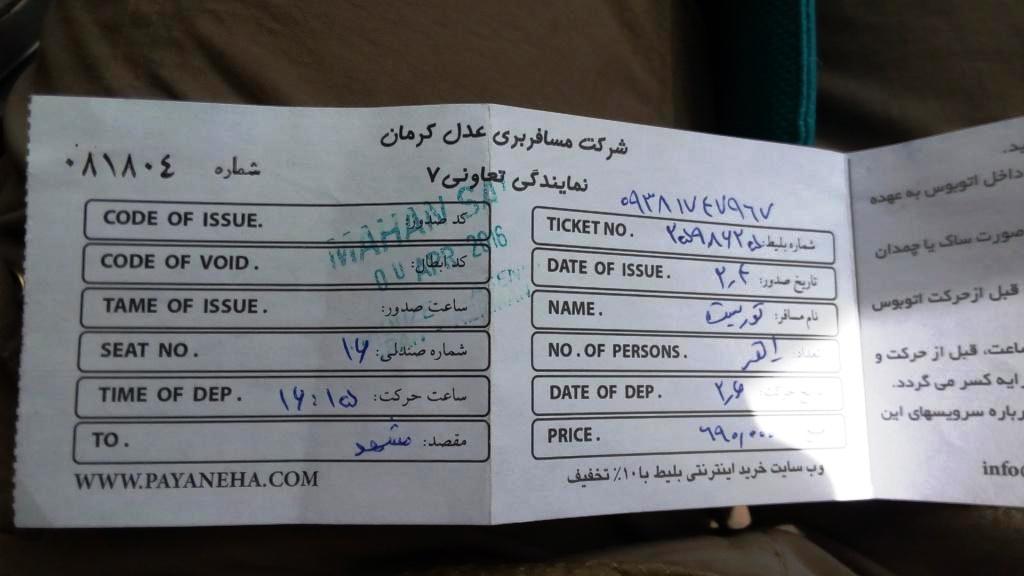 شرکت مسافربری عدل کرمان
نمایندگی تعاونی ۷
شماره ۰۸۱۸۰۴
CODE OF ISSUE. کد صدور:
CODE OF VOID. کد ابطال:
TAME OF ISSUE. ساعت صدور:
SEAT NO. شماره صندلی: ۱۶
TIME OF DEP. ساعت حرکت: ۱۶:۱۵
TO. مقصد: مشهد
WWW.PAYANEHA.COM
MAHAN SA
APR 2016
TICKET NO. شماره بلیط:
DATE OF ISSUE. تاریخ صدور: ۲,۴
NAME. نام مسافر: توریست
NO. OF PERSONS. تعداد:
DATE OF DEP. ۲,۶
PRICE. ۶۹۰,۰۰۰
وب سایت خرید اینترنتی بلیط با ۱۰٪ تخفیف
داخل اتوبوس به عهده
صورت ساک یا چمدان
قبل از حرکت اتوبوس
ساعت، قبل از حرکت و
رایه کسر می گردد.
رباره سرویسهای این
info@